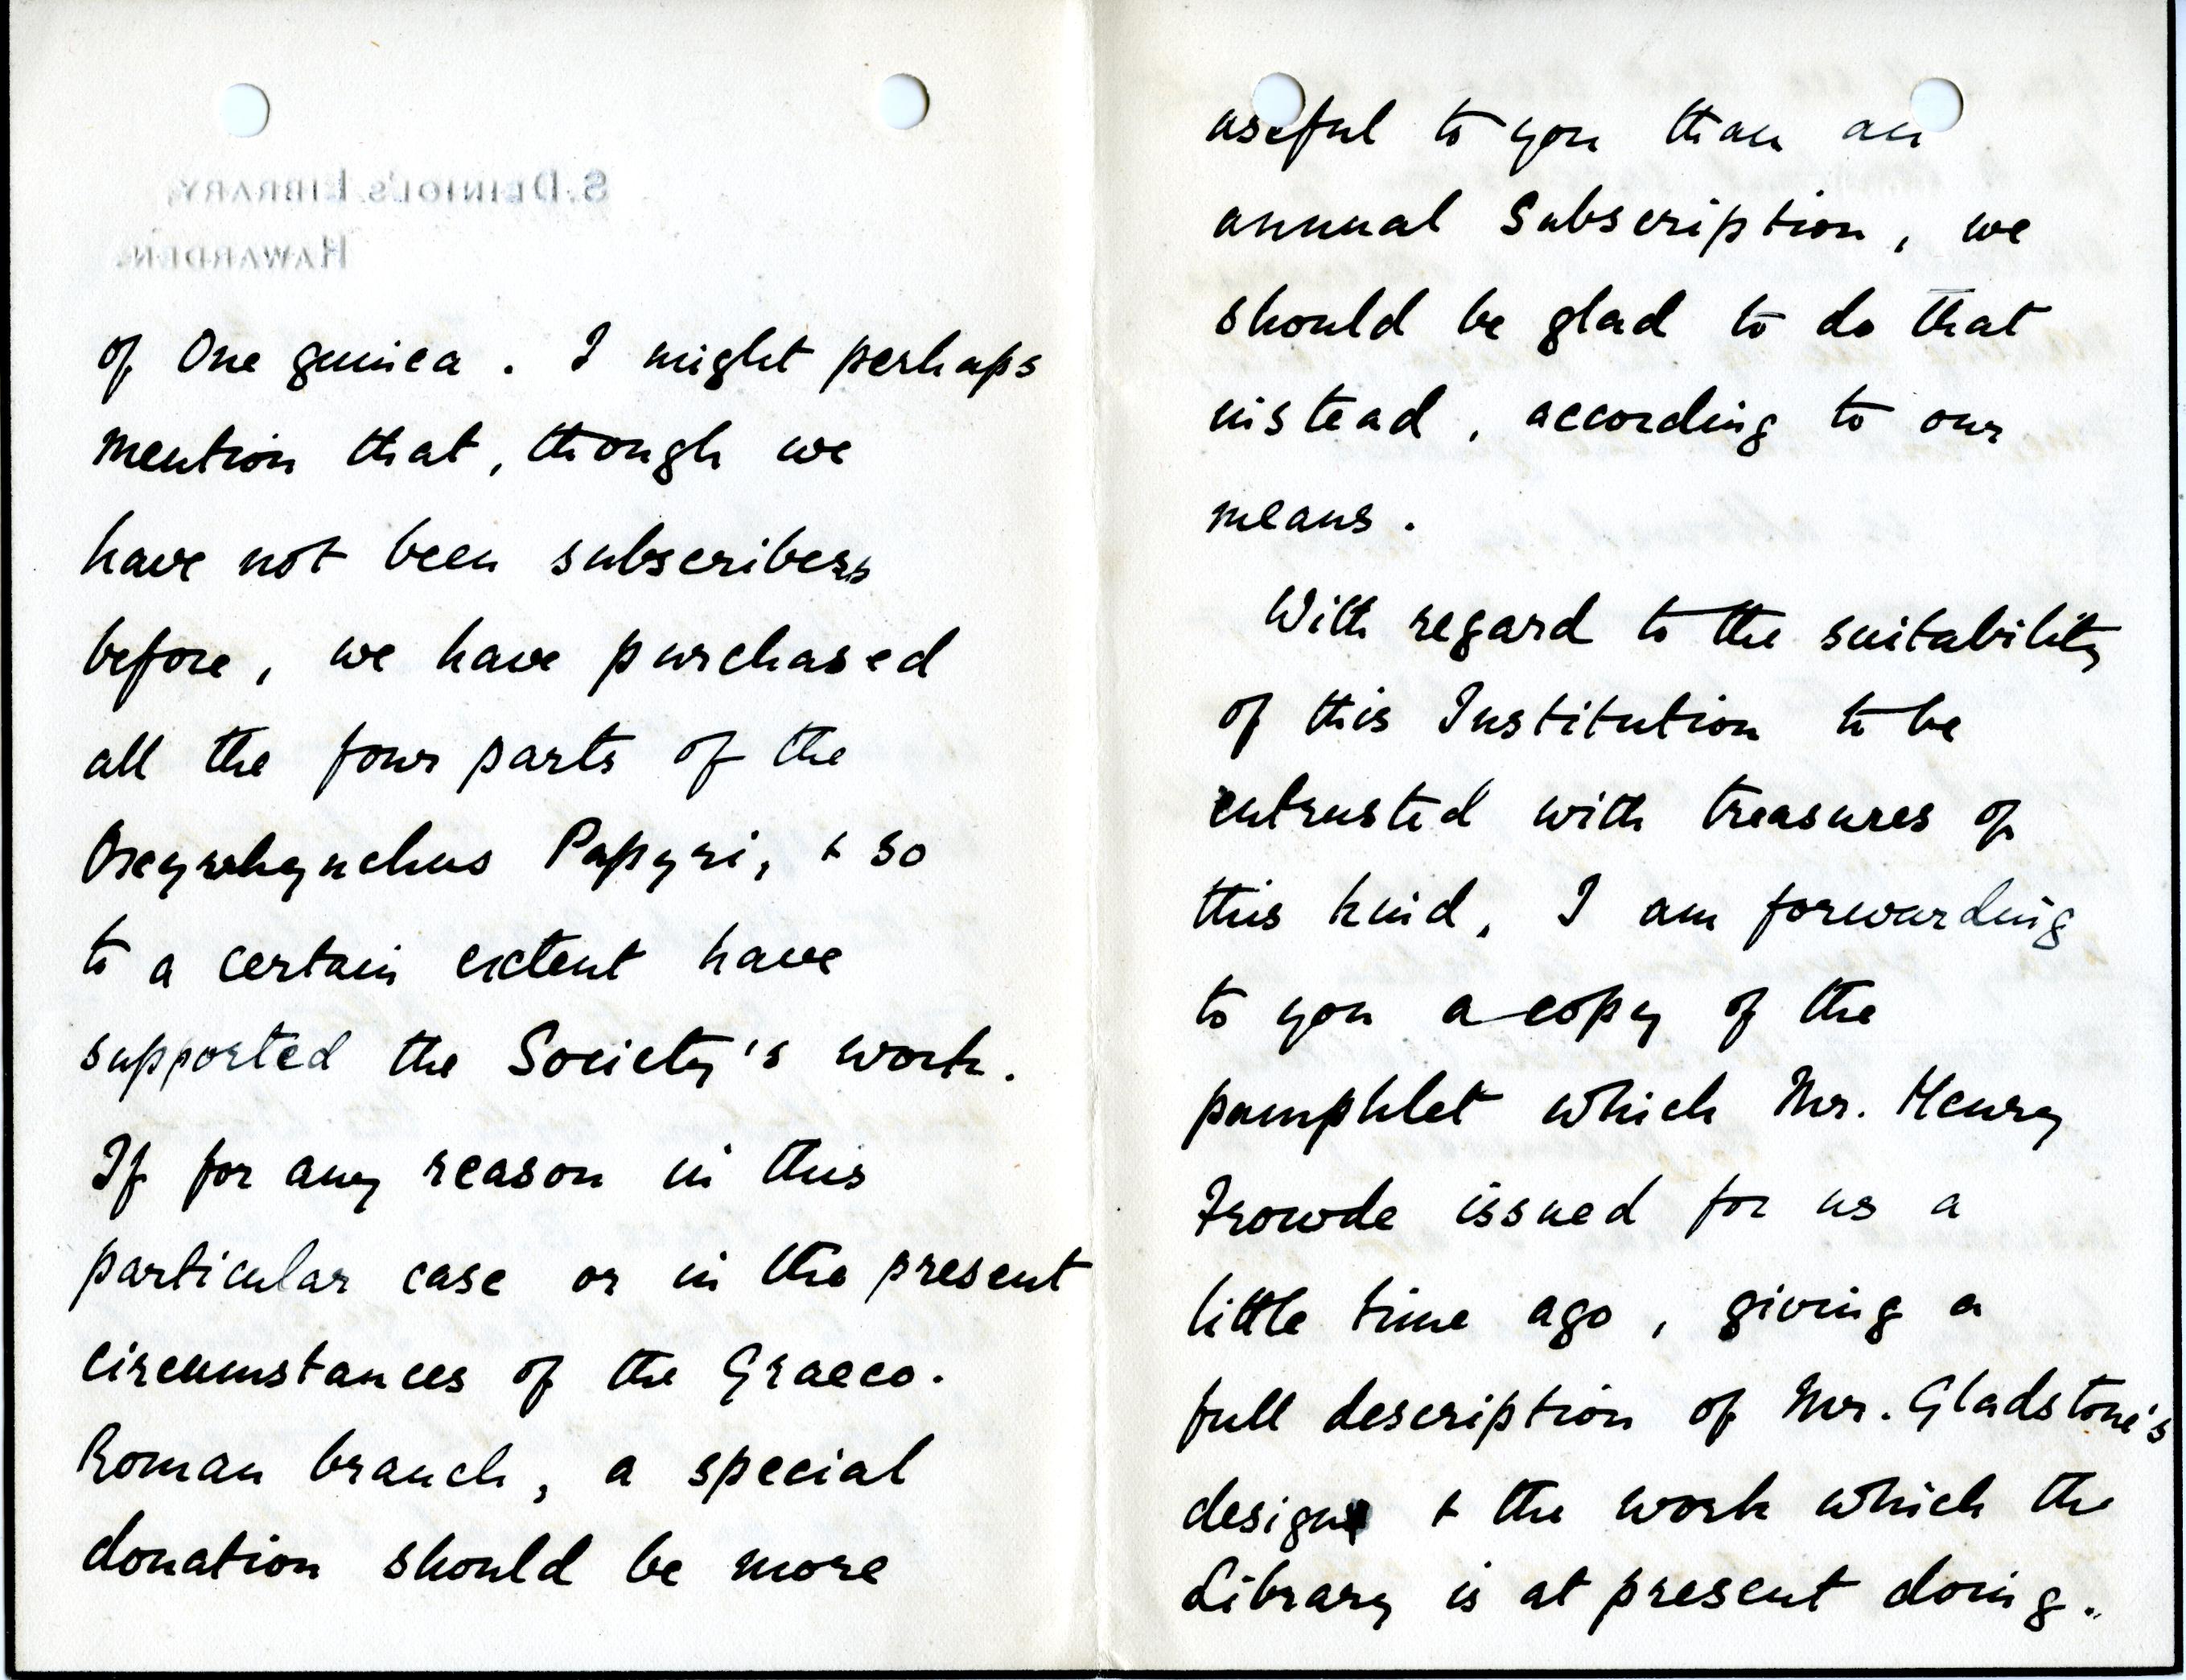 S. DEINIOL'S LIBRARY,
HAWARDEN.
of One guinea. I might perhaps
mention that, though we
have not been subscribers
before, we have purchased
all the four parts of the
Oxyrhynchus Papyri, & so
to a certain extent have
supported the Society's work.
If for any reason in this
particular case or in the present
circumstances of the Graeco-
Roman branch, a special
donation should be more
useful to you than an
annual Subscription, we
should be glad to do that
instead, according to our
means.
With regard to the suitability
of this Institution to be
entrusted with treasures of
this kind, I am forwarding
to you a copy of the
pamphlet which Mr. Henry
Frowde issued for us a
little time ago, giving a
full description of Mr. Gladstone's
design & the work which the
Library is at present doing.